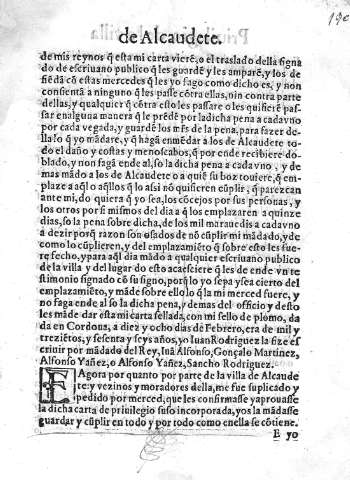 de Alcaudete.
de mis reynos q̃ esta mi carta vierẽ, o el traslado della signa
do de escriuano publico q̃ les guardẽ y les amparẽ, y los de
fiẽdã cõ estas mercedes q̃ les yo fago como dicho es, y non
consientã a ninguno q̃ les passe cõtra ellas, nin contra parte
dellas, y qualquier q̃ cõtra esto les passare o les quisiere pas-
sar en alguna manera q̃ le prẽdẽ por la dicha pena a cadavno
por cada vegada, y guardẽ los mr̃s de la pena, para fazer de-
lla lo q̃ yo mãdare, y q̃ hagã enmẽdar a los de Alcaudete to-
do el daño y costas y menoscabos, q̃ por ende recibiere do-
blado, y non fagã ende al, so la dicha pena a cadavno, y de
mas mãdo a los de Alcaudete o a quiẽ su boz touiere, q̃ en-
plaze a aq̃l o aq̃llos q̃ lo assi nõ quisierẽn cũplir, q̃ parezcan
ante mi, do quiera q̃ yo sea, los cõcejos por sus personas, y
los otros por si mismos del dia q̃ los emplazaren a quinze
dias, so la pena sobre dicha, de los mil marauedis a cadavno
a dezir porq̃ razon son osados de nõ cũplir mi mãdado, y de
como lo cũplieren, y del emplazamiẽto q̃ sobre esto les fue-
re fecho, y para aq̃l dia mãdo a qualquier escriuano publico
de la villa y del lugar do esto acaesciere q̃ les de ende vn te
stimonio signado cõ su signo, porq̃ lo yo sepa y sea cierto del
emplazamiẽto, y mãde sobre ello lo q̃ la mi merced fuere, y
no faga ende al so la dicha pena, y demas del officio y desto
les mãde dar esta mi carta sellada, con mi sello de plomo, da
da en Cordoua, a diez y ocho dias de Febrero, era de mil y
treziẽtos, y sesenta y seys años, yo Iuan Rodriguez la fize es
criuir por mãdado del Rey, Iuã Alfonso, Gonçalo Martinez,
Alfonso Yañez, o Alfonso Yañez, Sancho Rodriguez.
E Agora por quanto por parte de la villa de Alcaude
te: y vezinos y moradores della, me fue suplicado y
pedido por merced, que les confirmasse y aprouasse
la dicha carta de priuilegio suso incorporada, y os la mãdasse
guardar y cũplir en todo y por todo como en ella se cõtiene.
E yo